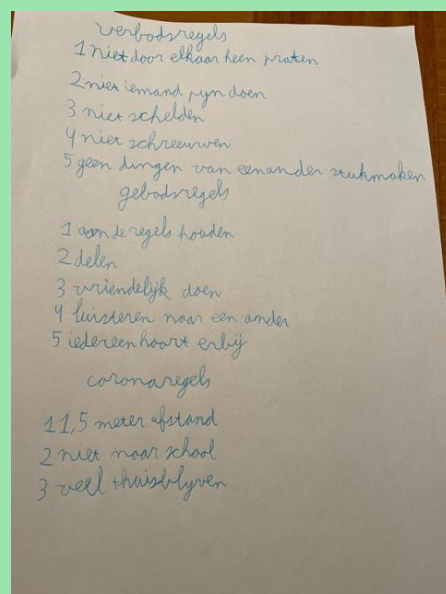 verbodsregels
1 niet door elkaar heen praten
2 niet iemand pyn doen
3 niet schelden
4 niet schreeuwen
5 geen dingen van eenander stukmaken
gebodsregels
1 aan de regels houden
2 delen
3 vriendelijk doen
4 luisteren naar een ander
5 iedereen hoort erbij
coronaregels
1 1,5 meter afstand
2 niet naar school
3 veel thuisblyven